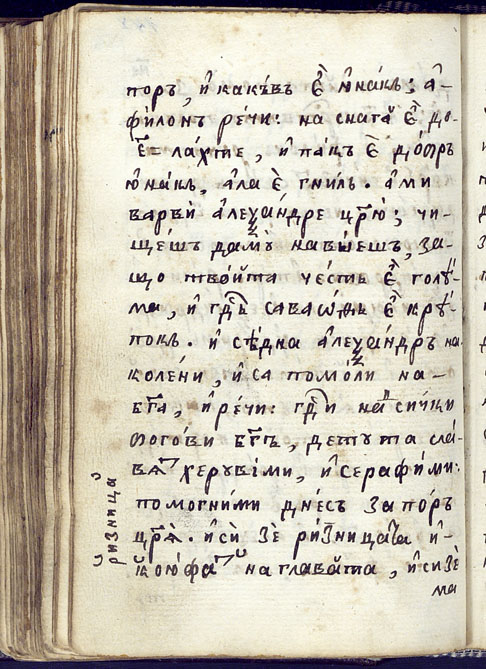 поръ, и какъвъ є҆ юнакъ; а҆-
филонъ речи: на снага є҆ до-
е҃= лахтїе, и пакъ є҆ добръ
юнакъ, ала є҆ гнилъ. ами
варви алеѯандре цр҃ю; чи-
щешъ дамъ навїешъ, за-
що твойта честь є҆ голѣ-
ма, и гдь саваѡѳъ є҆ крѣ-
покъ. и седна алеѯандръ на
колени, и са помоли на-
бг҃а, и речи: гд҃и на сички
богови бг҃ъ, дету та сла-
вятъ херувіми, и серафими:
помогними днесъ за поръ
цр҃я. и си зе ризницата и-
кюфа на главата, и си зе
ма
ризница